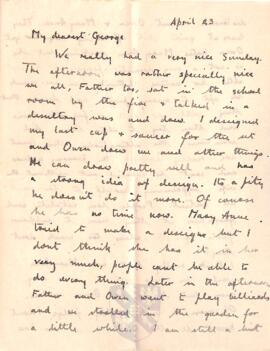 April 23
My dearest George
We really had a very nice Sunday.
The afternoon was rather specially nice
we all, Father too, sat in the school
room by the fire & talked in a
desultory way and drew. I designed
my last cup & saucer for the set
and Owen drew me and other things.
He can draw pretty well and has
a strong idea of design. Its a pity
he doesn't do it more. Of course
he has no time now. Mary Anne
tried to make a design but I
dont think she has it in her
very much, people cant be able to
do every thing. Later in the afternoon
Father and Owen went to play billiards
and we strolled in the garden for
a little while. I am still a bit